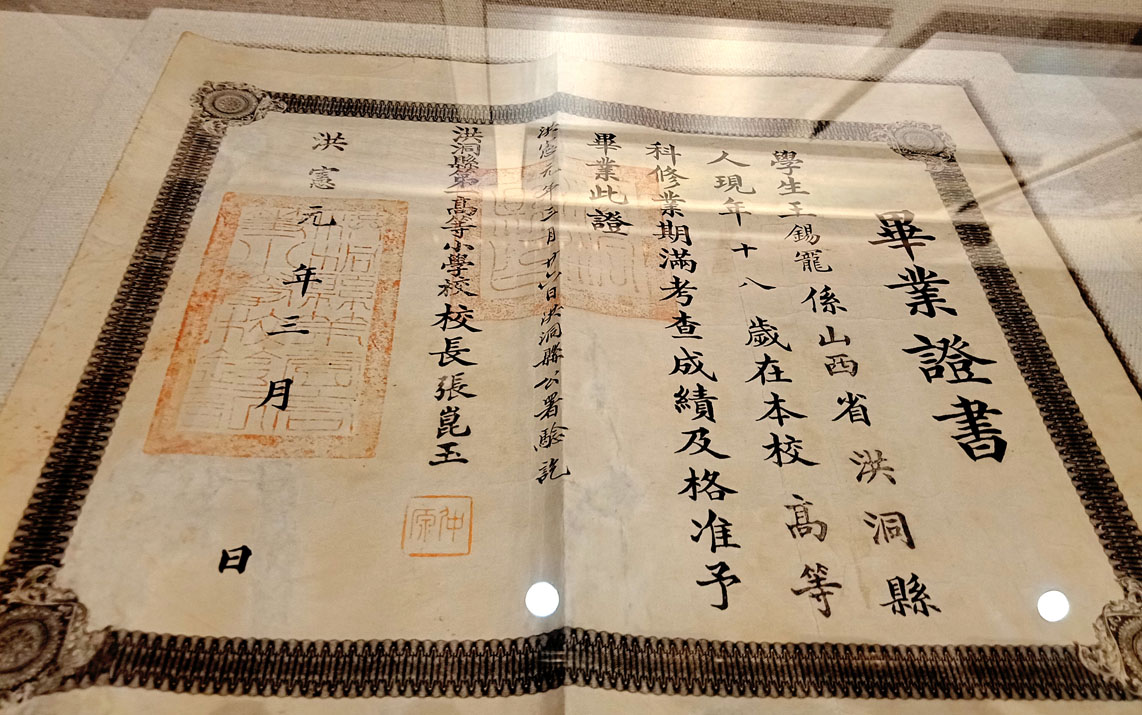 畢業證書
學生王錫寵係山西省洪洞縣
人現年十八歲在本校高等
科修業期滿考查成績及格准予
畢業此證
洪憲元年三月廿六日洪洞縣公署驗訖
洪洞縣第一高等小學校校長張崑玉
仲原
洪憲元年三月 日